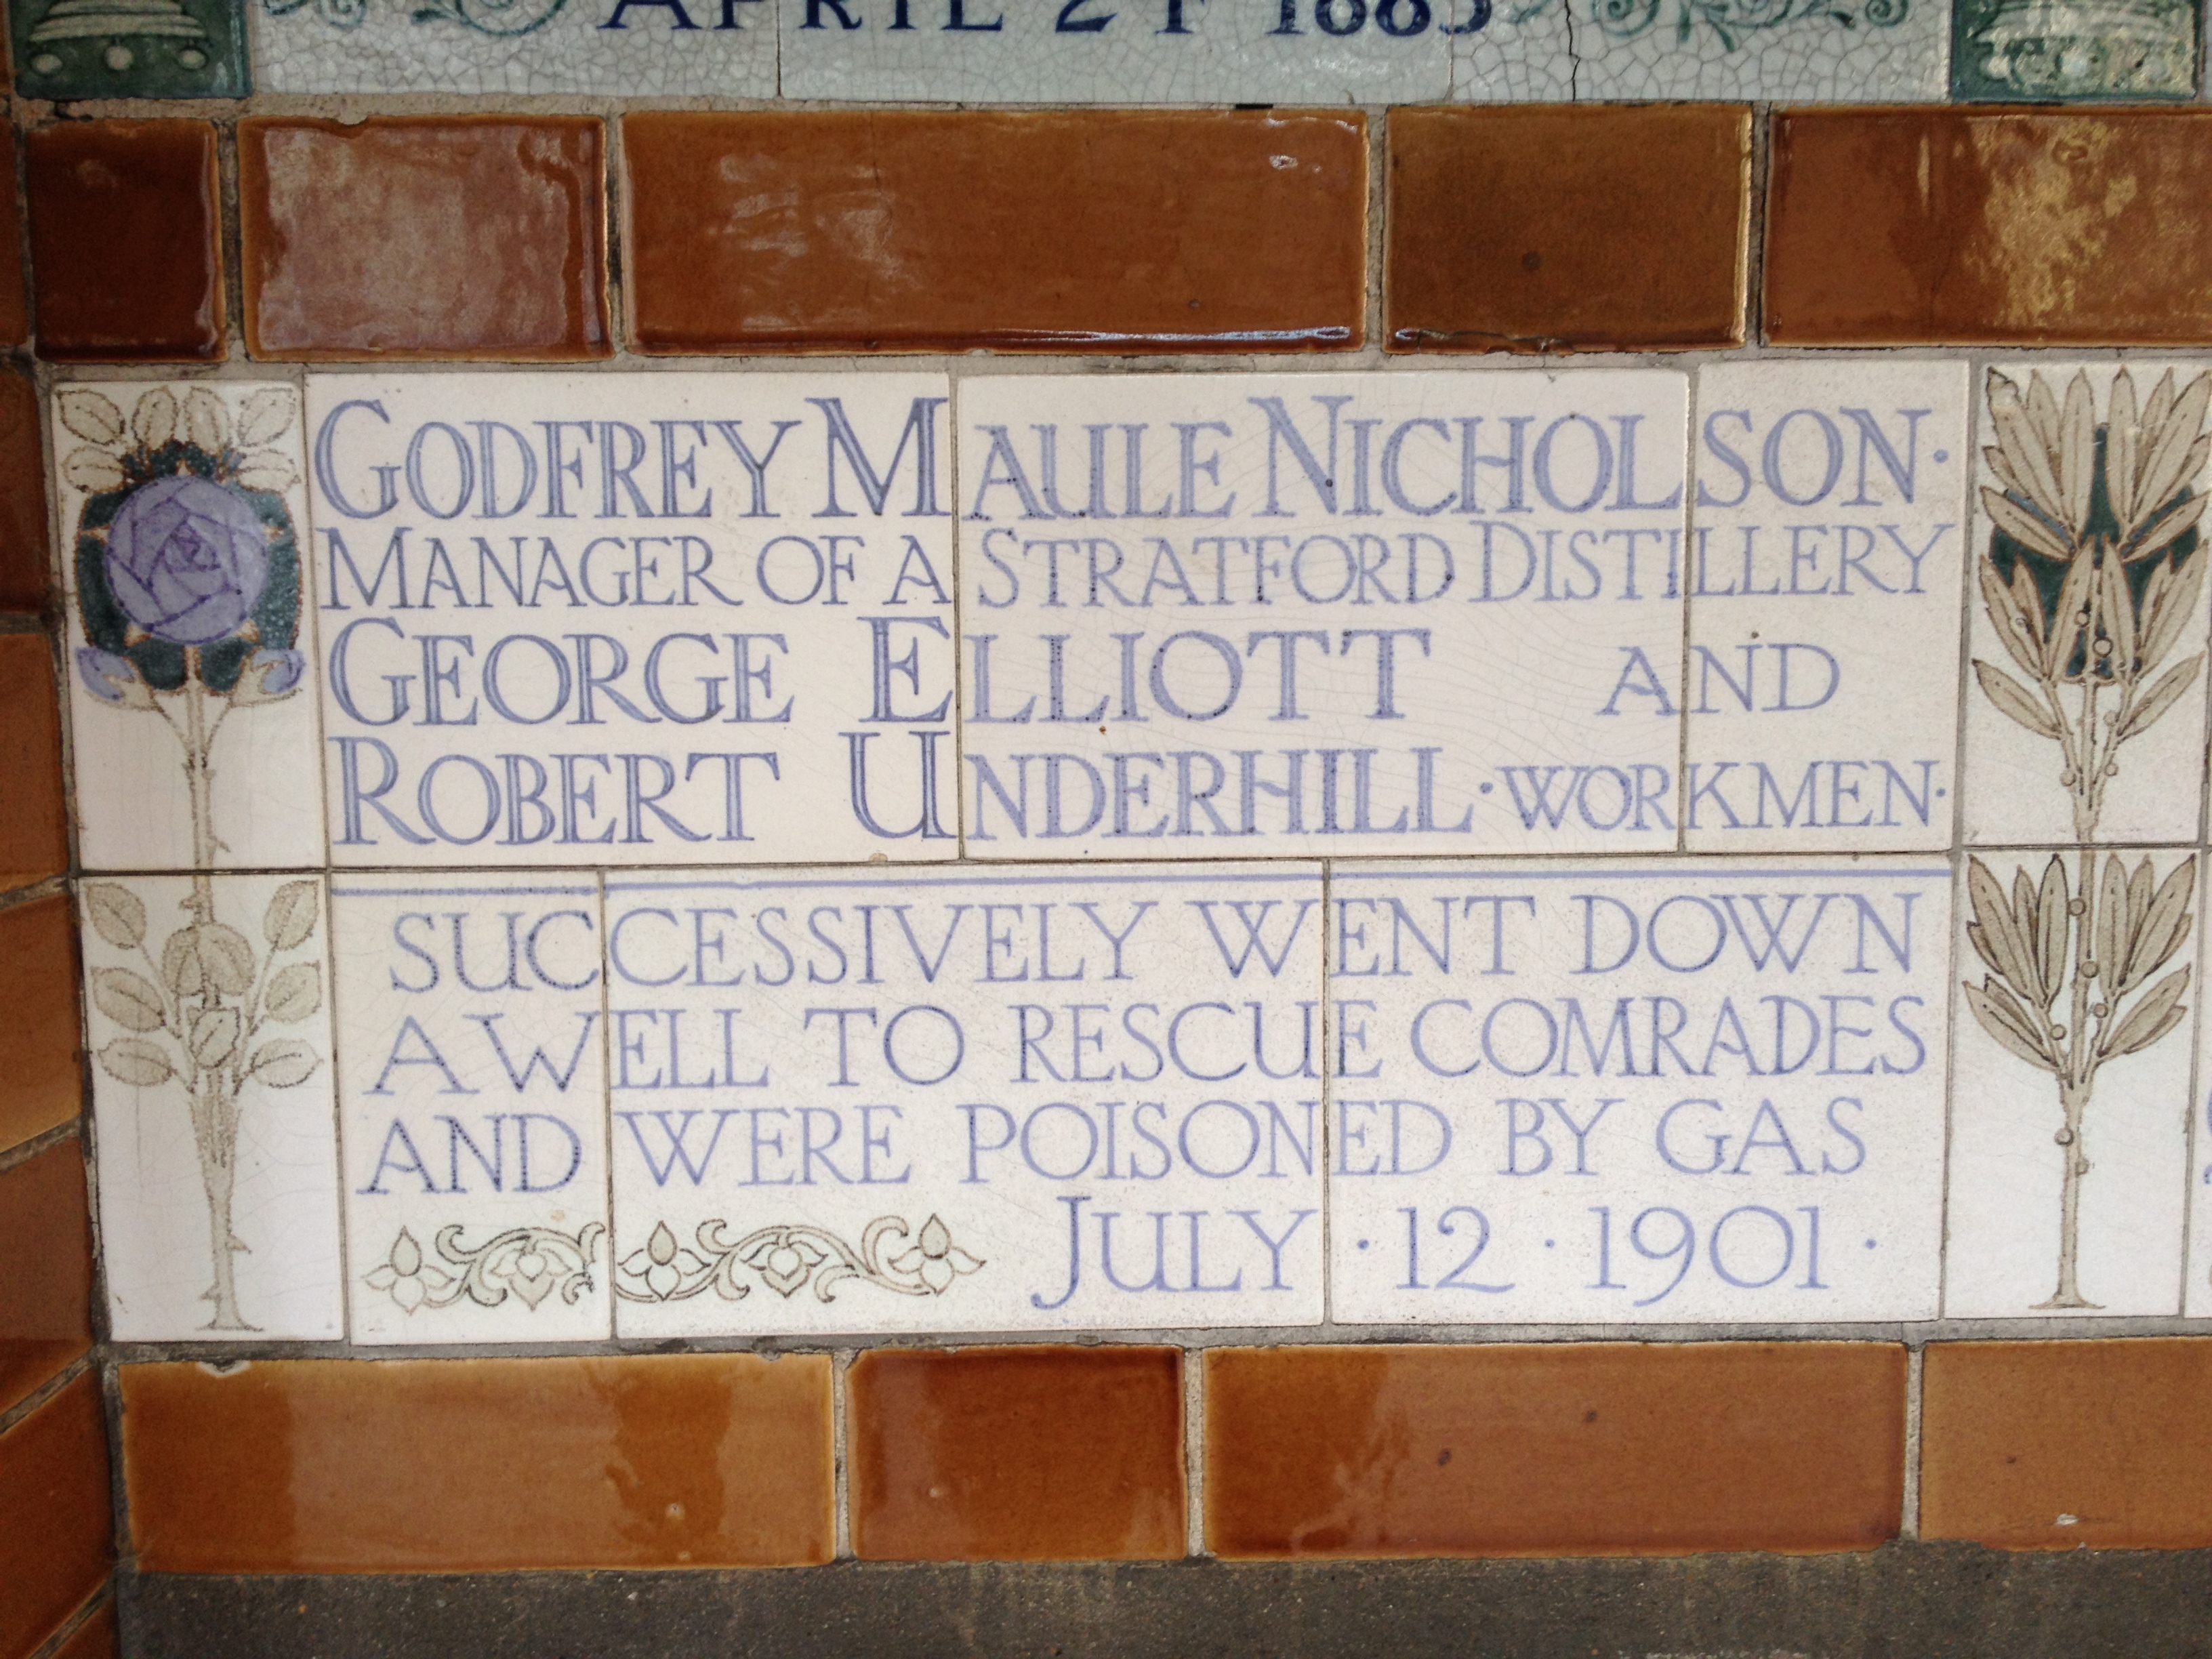 APRIL 24 1885
GODFREY MAULE NICHOLSON·
MANAGER OF A STRATFORD DISTILLERY
GEORGE ELLIOTT AND
ROBERT UNDERHILL·WORKMEN·
SUCCESSIVELY WENT DOWN
A WELL TO RESCUE COMRADES
AND WERE POISONED BY GAS
JULY · 12 · 1901 ·